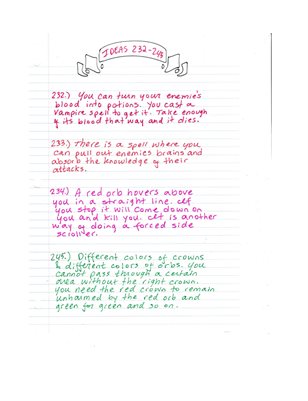 IDEAS 232-245
232.) You can turn your enemie's
blood into potions. You cast a
vampire spell to get it. Take enough
of its blood that way and it dies.
233.) There is a spell where you
can pull out enemies brains and
absorb the knowledge of their
attacks.
234.) A red orb hovers above
you in a straight line. If
you stop it will come down on
you and kill you. It is another
way of doing a forced side
scroller.
245.) Different colors of crowns
& different colors of orbs. You
cannot pass through a certain
area without the right crown.
You need the red crown to remain
unharmed by the red orb and
green for green and so on.